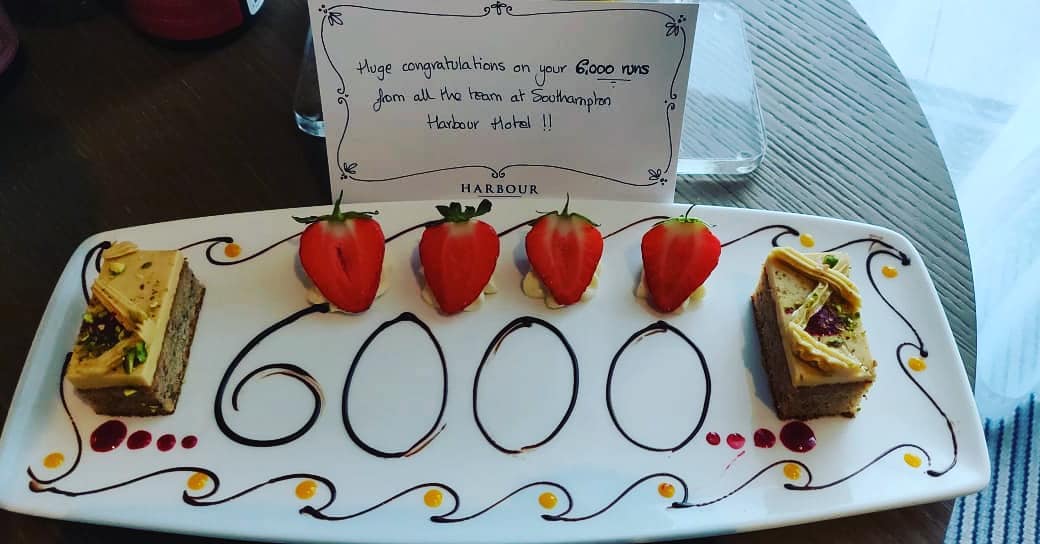 Huge congratulations on your 6,000 runs
from all the team at Southampton
Harbour Hotel !!
HARBOUR
6000